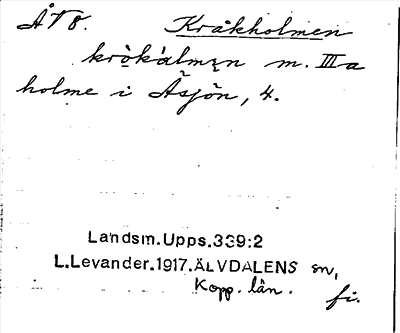 ÅT8. Kråkholmen
krò̀kàlmɛn m. IIIa
holme i Åsjön, 4.
Landsm.Upps.339:2
L.Levander.1917.ÄLVDALENS sn,
Kopp. län. fi.